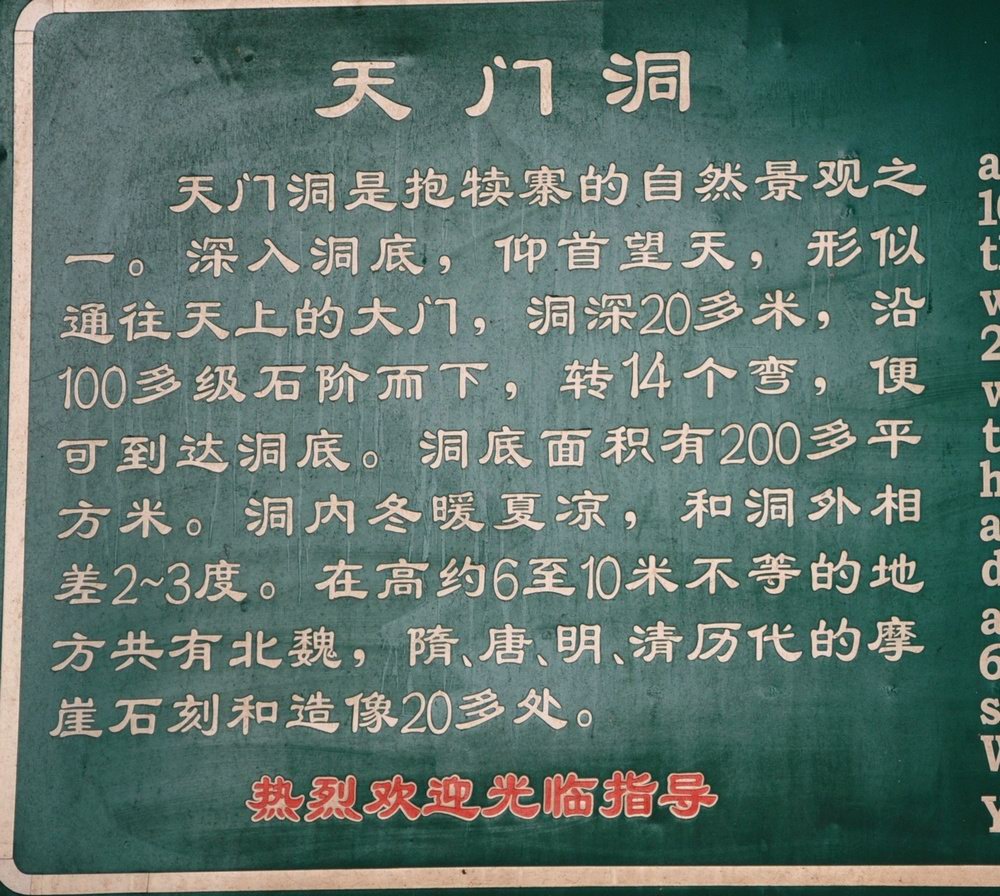 天门洞
天门洞是抱犊寨的自然景观之
一。深入洞底，仰首望天，形似
通往天上的大门，洞深20多米，沿
100多级石阶而下，转14个弯，便
可到达洞底。洞底面积有200多平
方米。洞内冬暖夏凉，和洞外相
差2~3度。在高约6至10米不等的地
方共有北魏，隋、唐、明、清历代的摩
崖石刻和造像20多处。
热烈欢迎光临指导